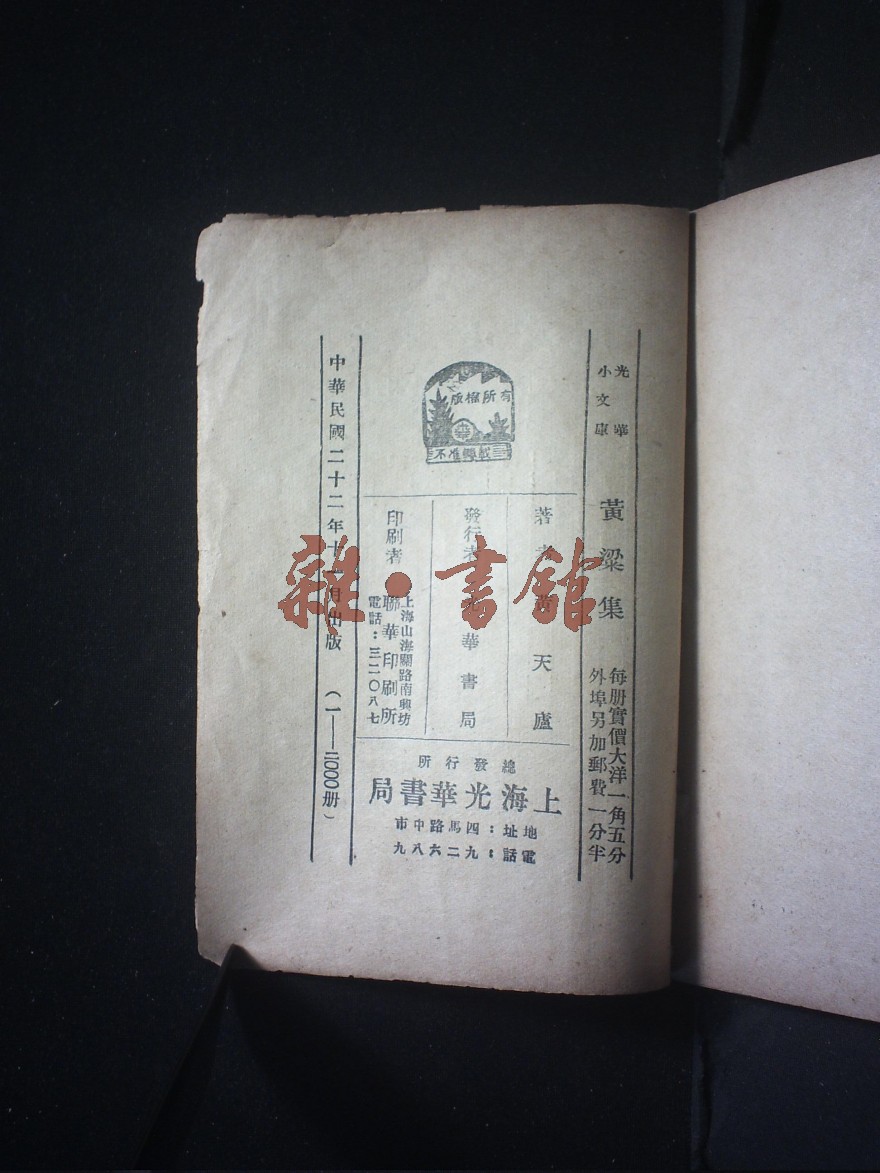 光華
小文庫
黃粱集
每册實價大洋一角五分
外埠另加郵費一分半
有所權版
不准轉載
著者 黃天廬
發行者 光華書局
印刷者 聯華印刷所
上海山海關路南興坊
電話：三二〇八七
總發行所
上海光華書局
地址：四馬路中市
電話：九二六八九
中華民國二十二年十一月出版
（一——二000册）
雜·書館